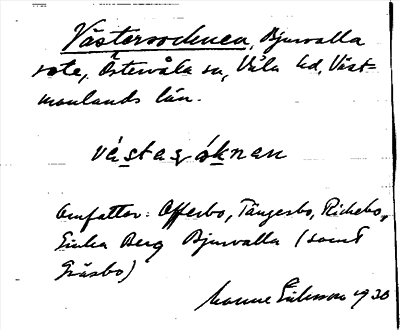 Västersocknen, Bjurvalla
rote, Östervåla sn, Våla hd, Väst-
manlands län.
västasóknan
Omfattar: Offerbo, Tängesbo, Rickebo,
Berg Bjurvalla (samt
Gräsbo)
Manne Eriksson 1930